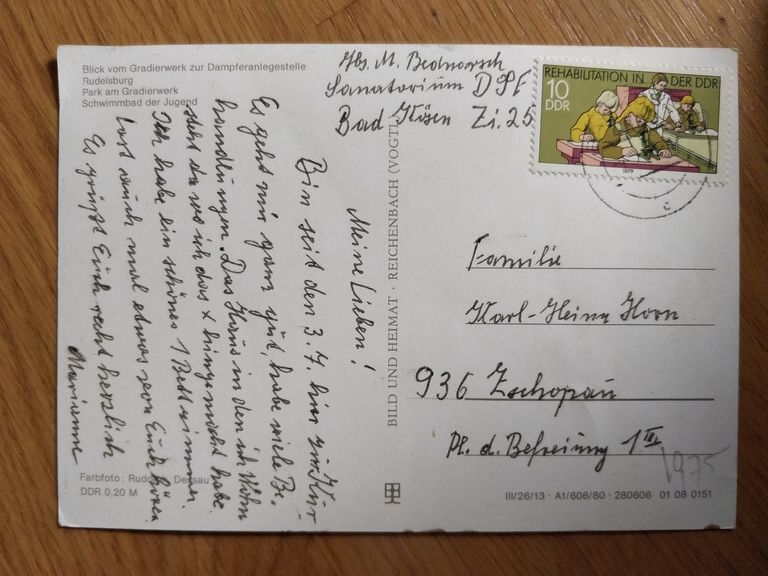 Blick vom Gradierwerk zur Dampferanlegestelle
Rudelsburg
Park am Gradierwerk
Schwimmbad der Jugend
Abs. M. Bednorsch
Sanatorium DSF
Bad Kösen Zi. 25
REHABILITATION IN DER DDR
10
DDR
1979
Meine Lieben!
Bin seit den 3.7. hier zur Kur.
Es geht mir ganz gut, habe viele Be-
handlungen. Das Haus in den ich Wohn
steht da wo ich das x hingemacht habe.
Ich habe ein schönes 1 Bettzimmer.
Last auch mal etwas von Euch hören
Es grüßt Euch recht herzlich
Marianne
BILD UND HEIMAT · REICHENBACH (VOGTL
Familie
Karl-Heinz Horn
936 Zschopau
Pl. d. Befreiung 1 III
1975
Farbfoto: Rudolf, Dessau
DDR 0,20 M
III/26/13 · A1/606/80 · 280606 01 08 0151